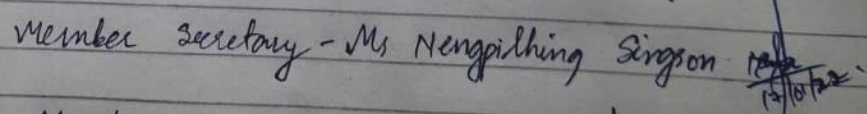 Member Secretary - Ms Nengpilhing Singson